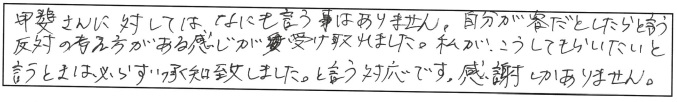 甲斐さんに対しては、なにも言う事はありません。自分が客だとしたらと言う
反対の考え方がある感じが受け取れました。私が、こうしてもらいたいと
言うときは必らず承知致しました。と言う対応です。感謝しかありません。